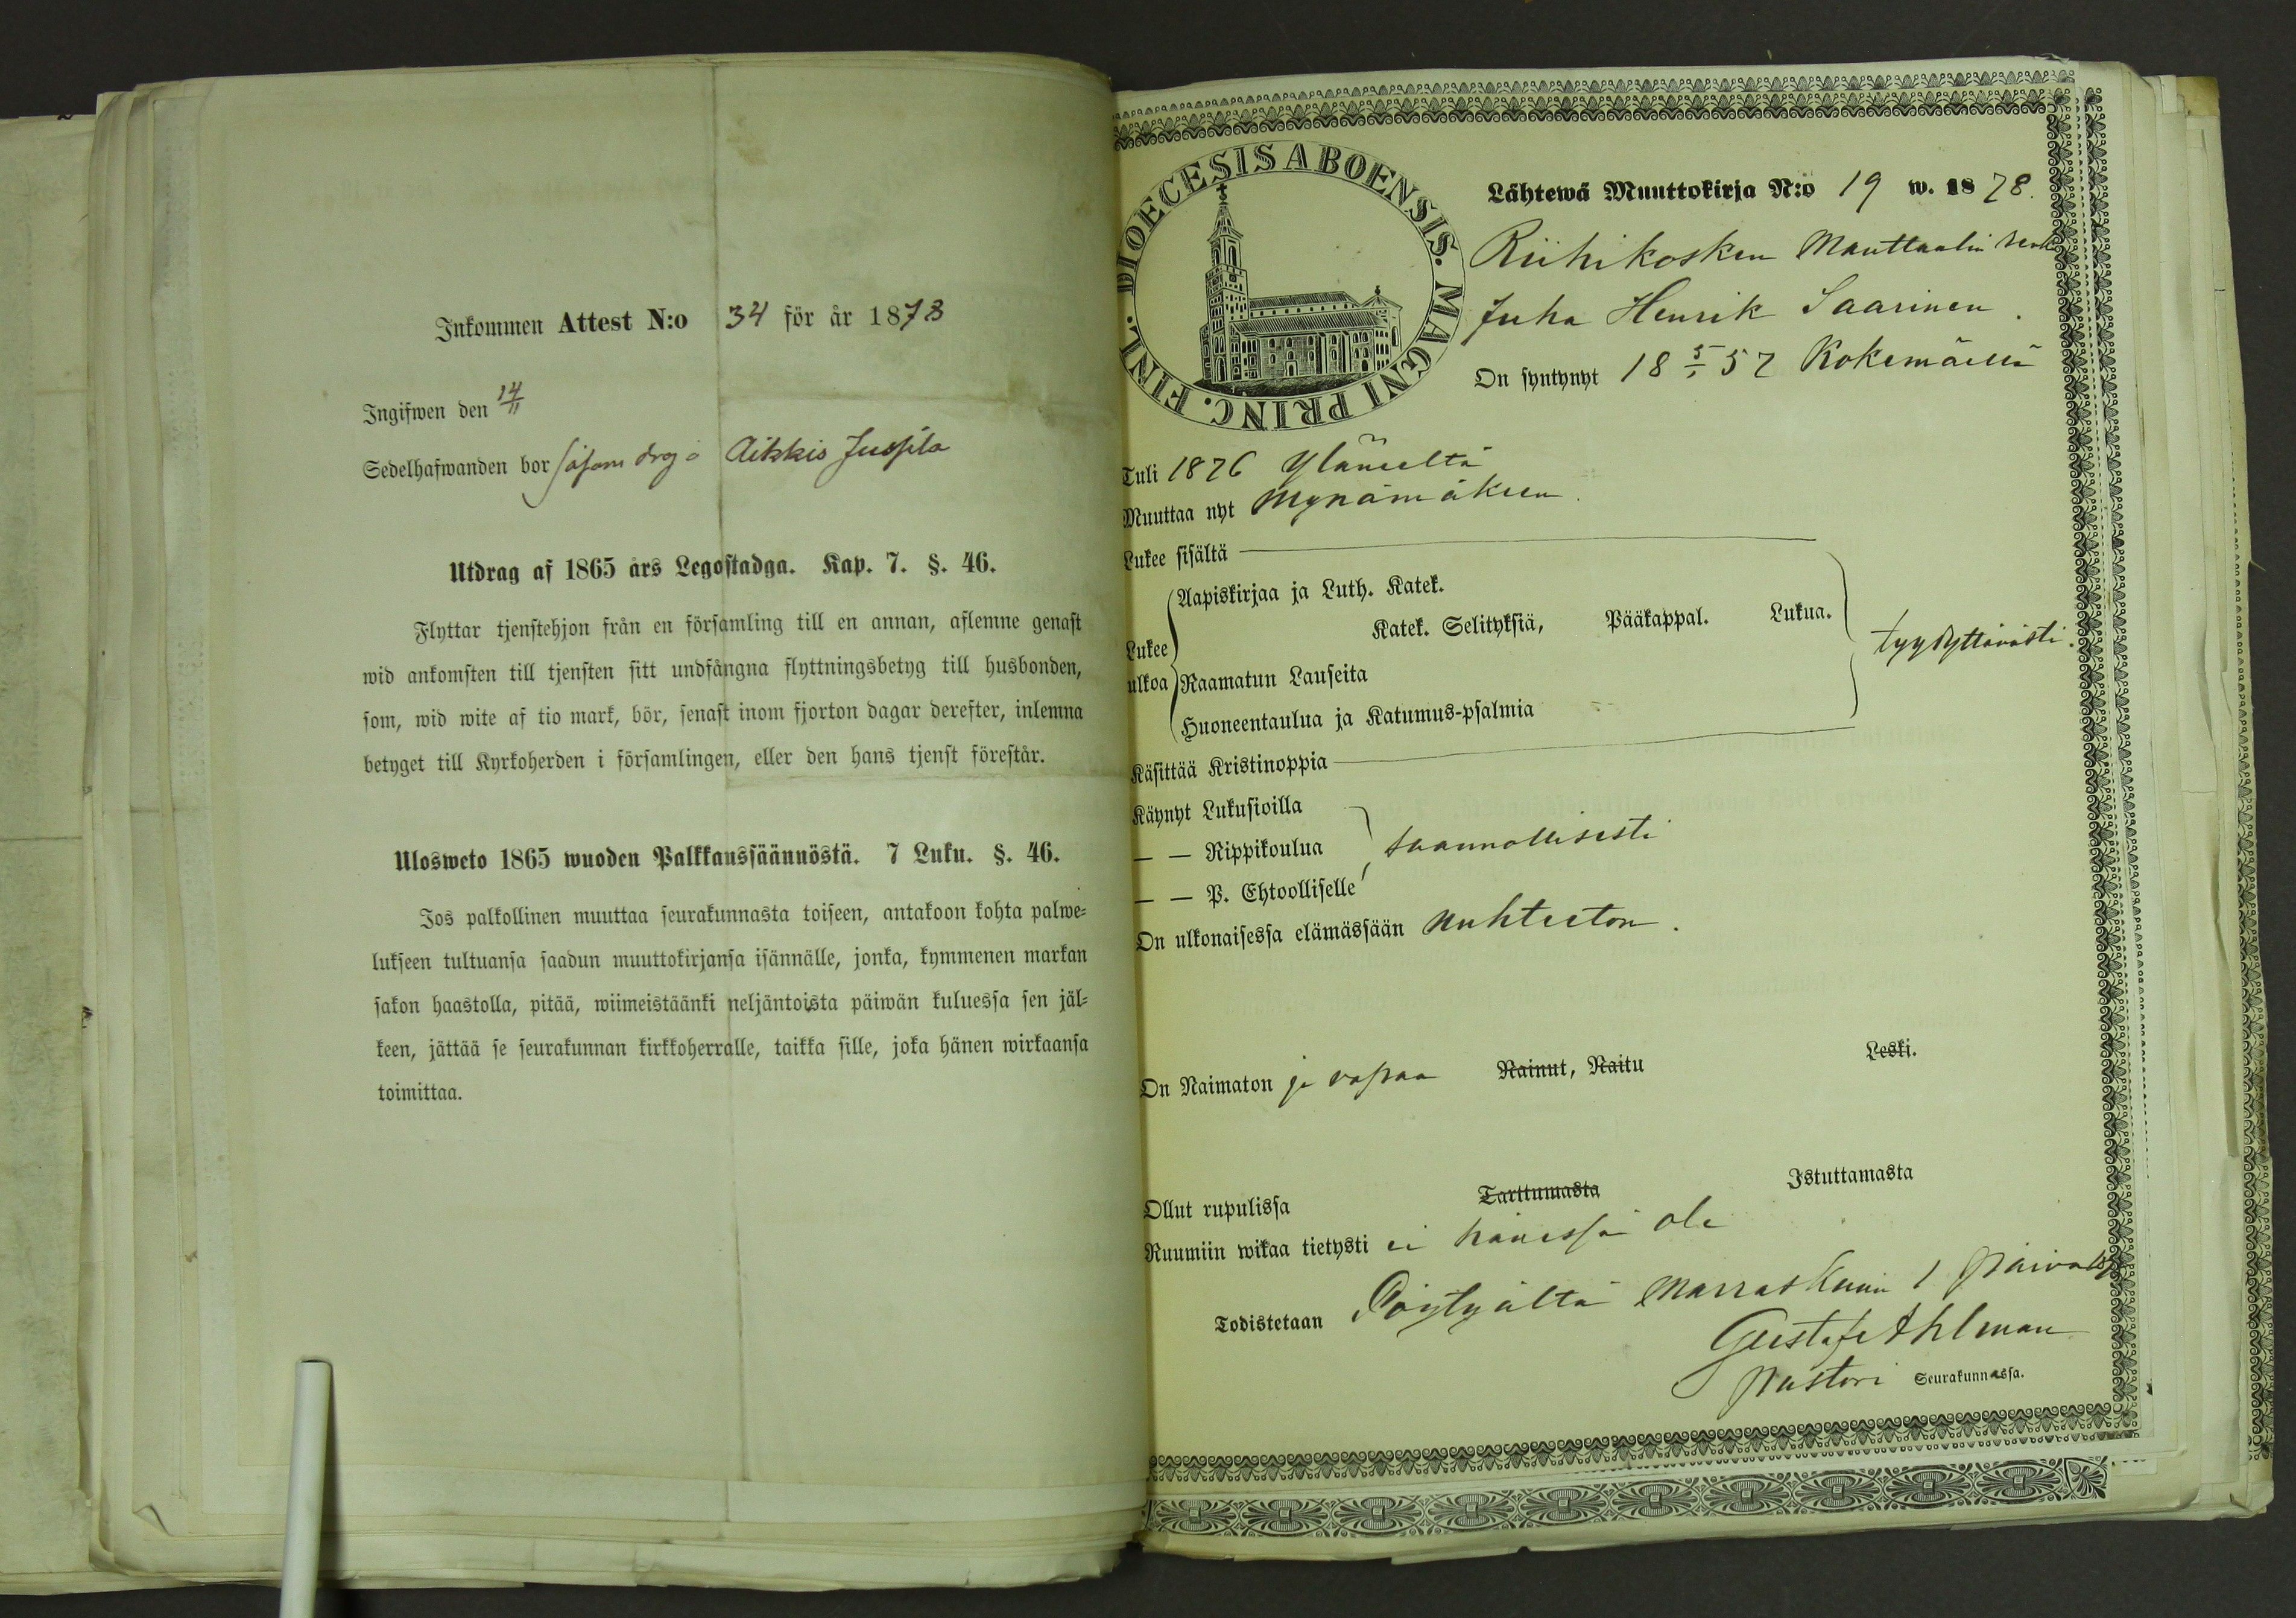 Inkommen Attest N:o 34 för år 1878
Ingifwen den 14/11
Sedelhafwanden bor såsom drg å Aikkis Jussila
Utdrag af 1865 års Legostadga. Kap. 7. §. 46.
Flyttar tjenstehjon från en församling till en annan, aflemne genast
wid ankomsten till tjensten sitt undfångna flyttningsbetyg till husbonden,
som, wid wite af tio mark, bör, senast inom fjorton dagar derefter, inlemna
betyget till Kyrkoherden i församlingen, eller den hans tjenst förestår.
Ulosweto 1865 wuoden Palkkaussäännöstä. 7 Luku. §. 46.
Jos palkollinen muuttaa seurakunnasta toiseen, antakoon kohta palwe=
lukseen tultuansa saadun muuttokirjansa isännälle, jonka, kymmenen markan
sakon haastolla, pitää, wiimeistäänki neljäntoista päiwän kuluessa sen jäl=
keen, jättää se seurakunnan kirkkoherralle, taikka sille, joka hänen wirkaansa
toimittaa.
DIOECESIS ABOENSIS. MAGNI PRINC. FINL.
Lähtewä Muuttokirja N:o 19 w. 1878.
Riihikosken Manttaalin
Juha Henrik Saarinen.
On syntynyt 18 5/1 57 Kokemäellä
Tuli 1876 Yläneeltä
Muuttaa nyt Mynämäkeen.
Lukee sisältä
Lukee ulkoa
Aapiskirjaa ja Luth. Katek.
Katek. Selityksiä, Pääkappal. Lukua.
Raamatun Lauseita
Huoneentaulua ja Katumus-psalmia
tyydyttävästi.
Käsittää Kristinoppia
Käynyt Lukusioilla
— — Rippikoulua säännöllisesti
— — P. Ehtoolliselle
On ulkonaisessa elämässään nuhteeton.
On Naimaton ja vapaa Nainut, Naitu Leski.
Ollut rupulissa Tarttumasta Istuttamasta
Ruumiin wikaa tietysti ei hänessä ole
Todistetaan Pöytyältä Marraskuun 1 päivä
Gustaf Ahlman
Pastori Seurakunnassa.